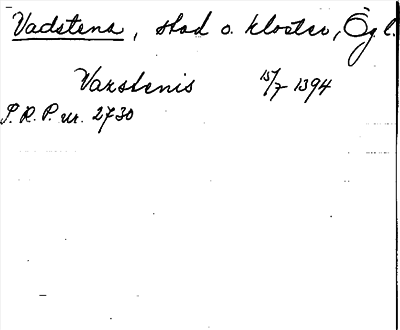 Vadstena, stad o. kloster, Ög l.
Vazstenis 15/7 1394
S. R. P. nr. 2730